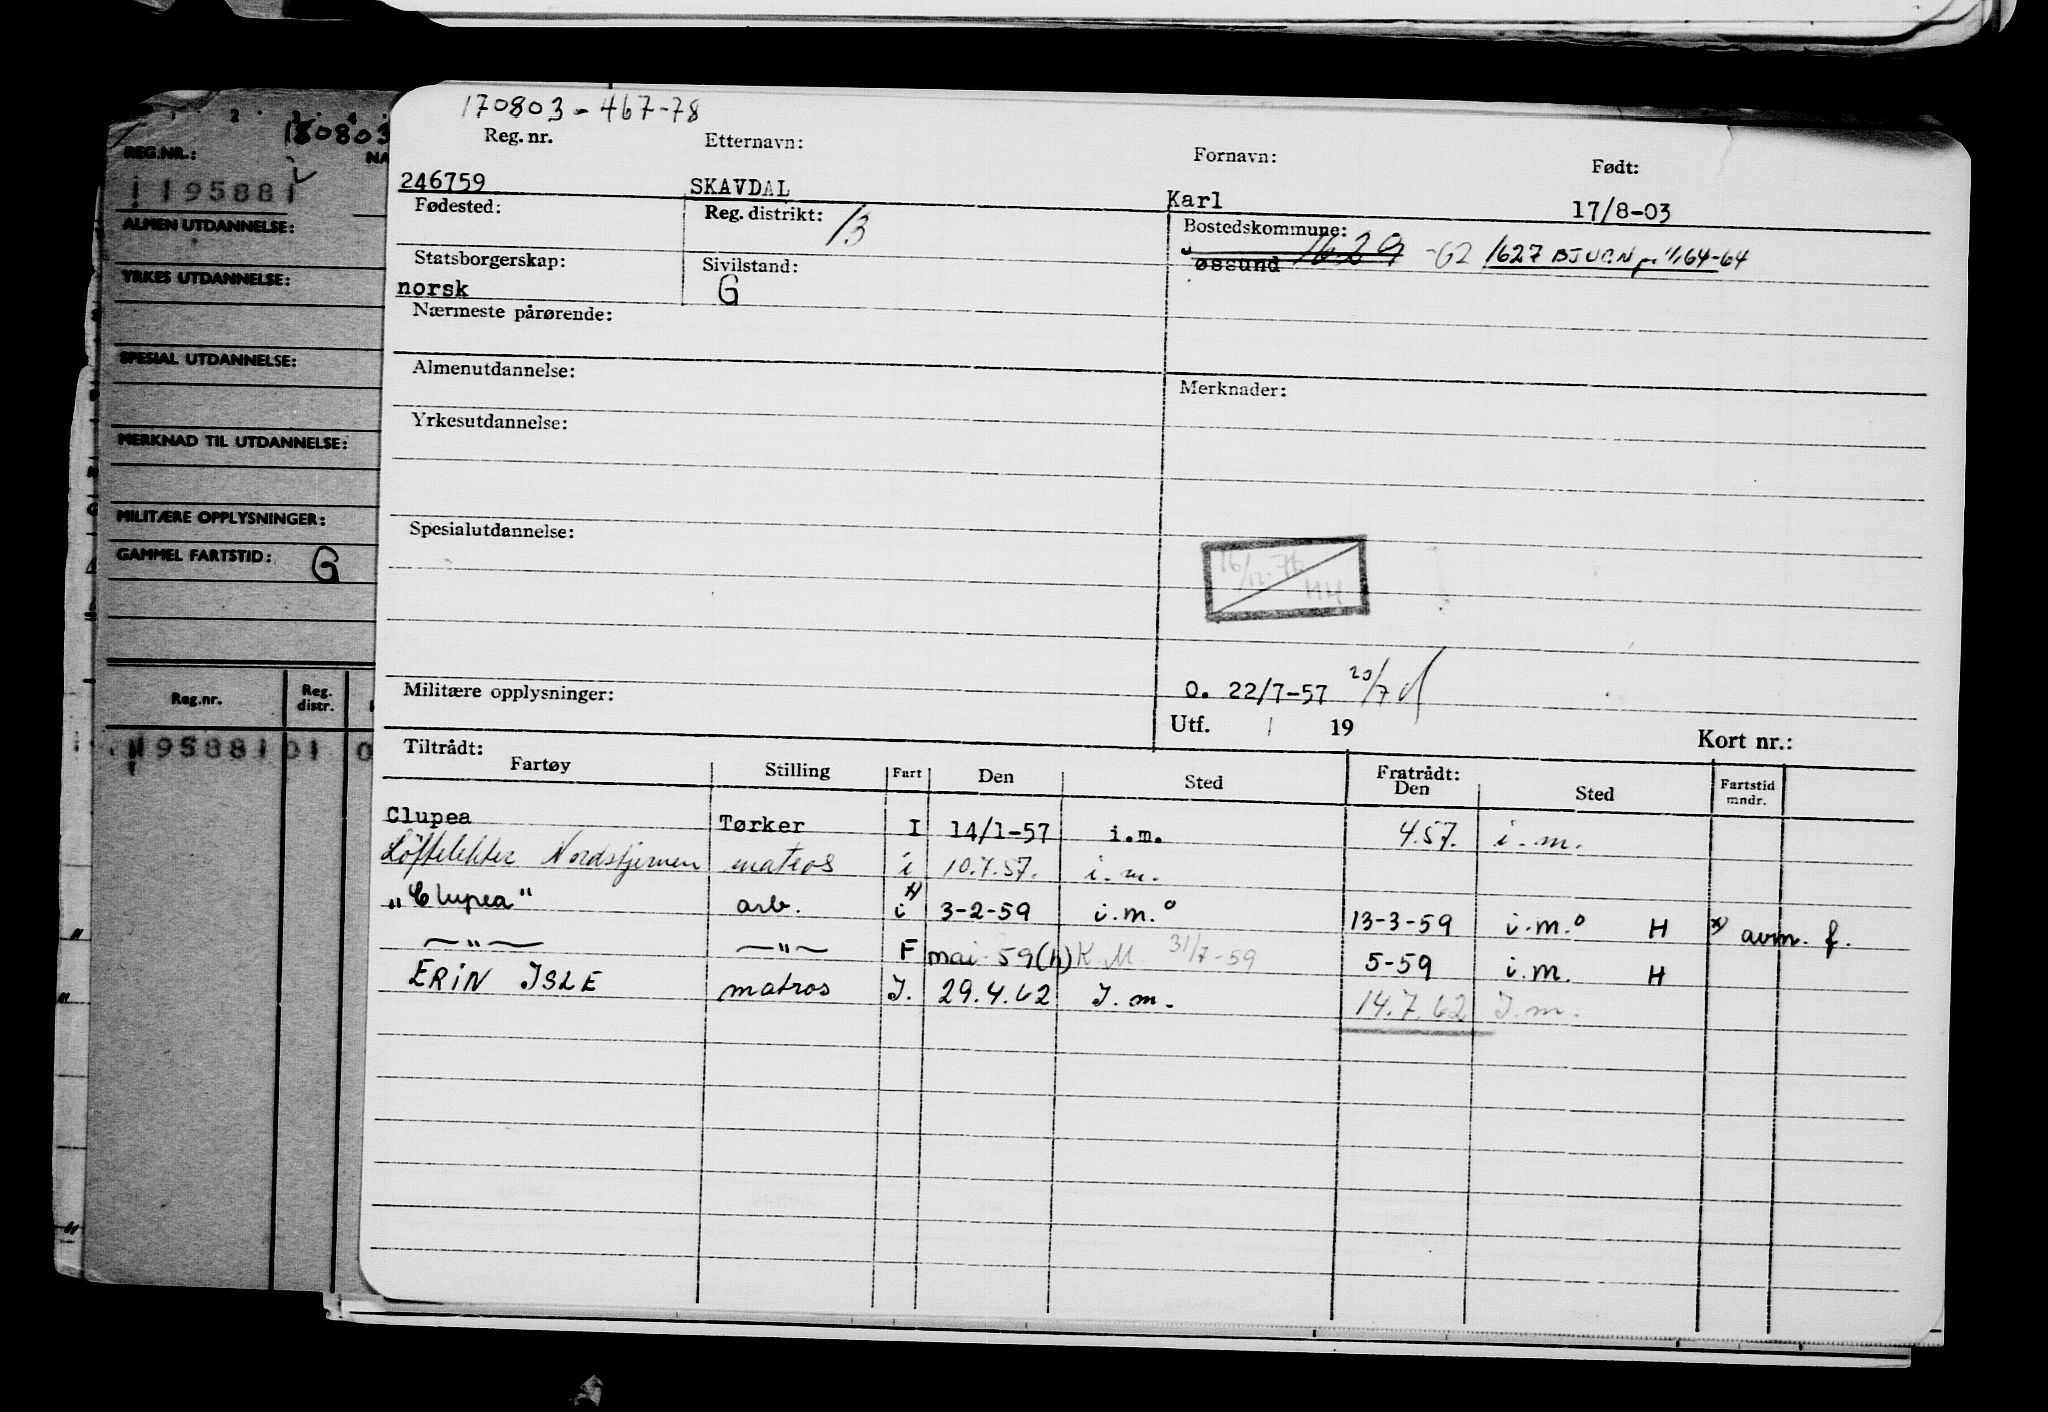 170803-467-78
Reg. nr. Etternavn: Fornavn: Født:
246759 SKAVDAL Karl 17/8-03
Fødested: Reg. distrikt: 13 Bostedskommune:
øssund 1629 -62 1627 BJUGN pr 1/1 64-64
Statsborgerskap: Sivilstand:
norsk G
Nærmeste pårørende:
Almenutdannelse: Merknader:
Yrkesutdannelse:
Spesialutdannelse:
16/11-76
HH
Militære opplysninger: O. 22/7-57 23/7
Utf. / 19 Kort nr.:
Tiltrådt: Fratrådt:
Fartøy Stilling Fart Den Sted Den Sted Fartstid mndr.
Clupea Tørker I 14/1-57 i.m. 4.57. i.m.
Nordstjernen matros i 10.7.57. i.m.
"Clupea" arb. i x) 3-2-59 i.m.° 13-3-59 i.m.° H x) avm. f.
—"— —"— F mai 59(h) K.M 31/7-59 5-59 i.m. H
ERIN ISLE matros I. 29.4.62 I.m. 14.7.62 I.m.
1 2 3 4
180803
REG.NR.: NA
1195881
ALMEN UTDANNELSE:
YRKES UTDANNELSE:
SPESIAL UTDANNELSE:
MERKNAD TIL UTDANNELSE:
MILITÆRE OPPLYSNINGER:
GAMMEL FARTSTID: G
Reg.nr. Reg. distr.
1195881 01 0